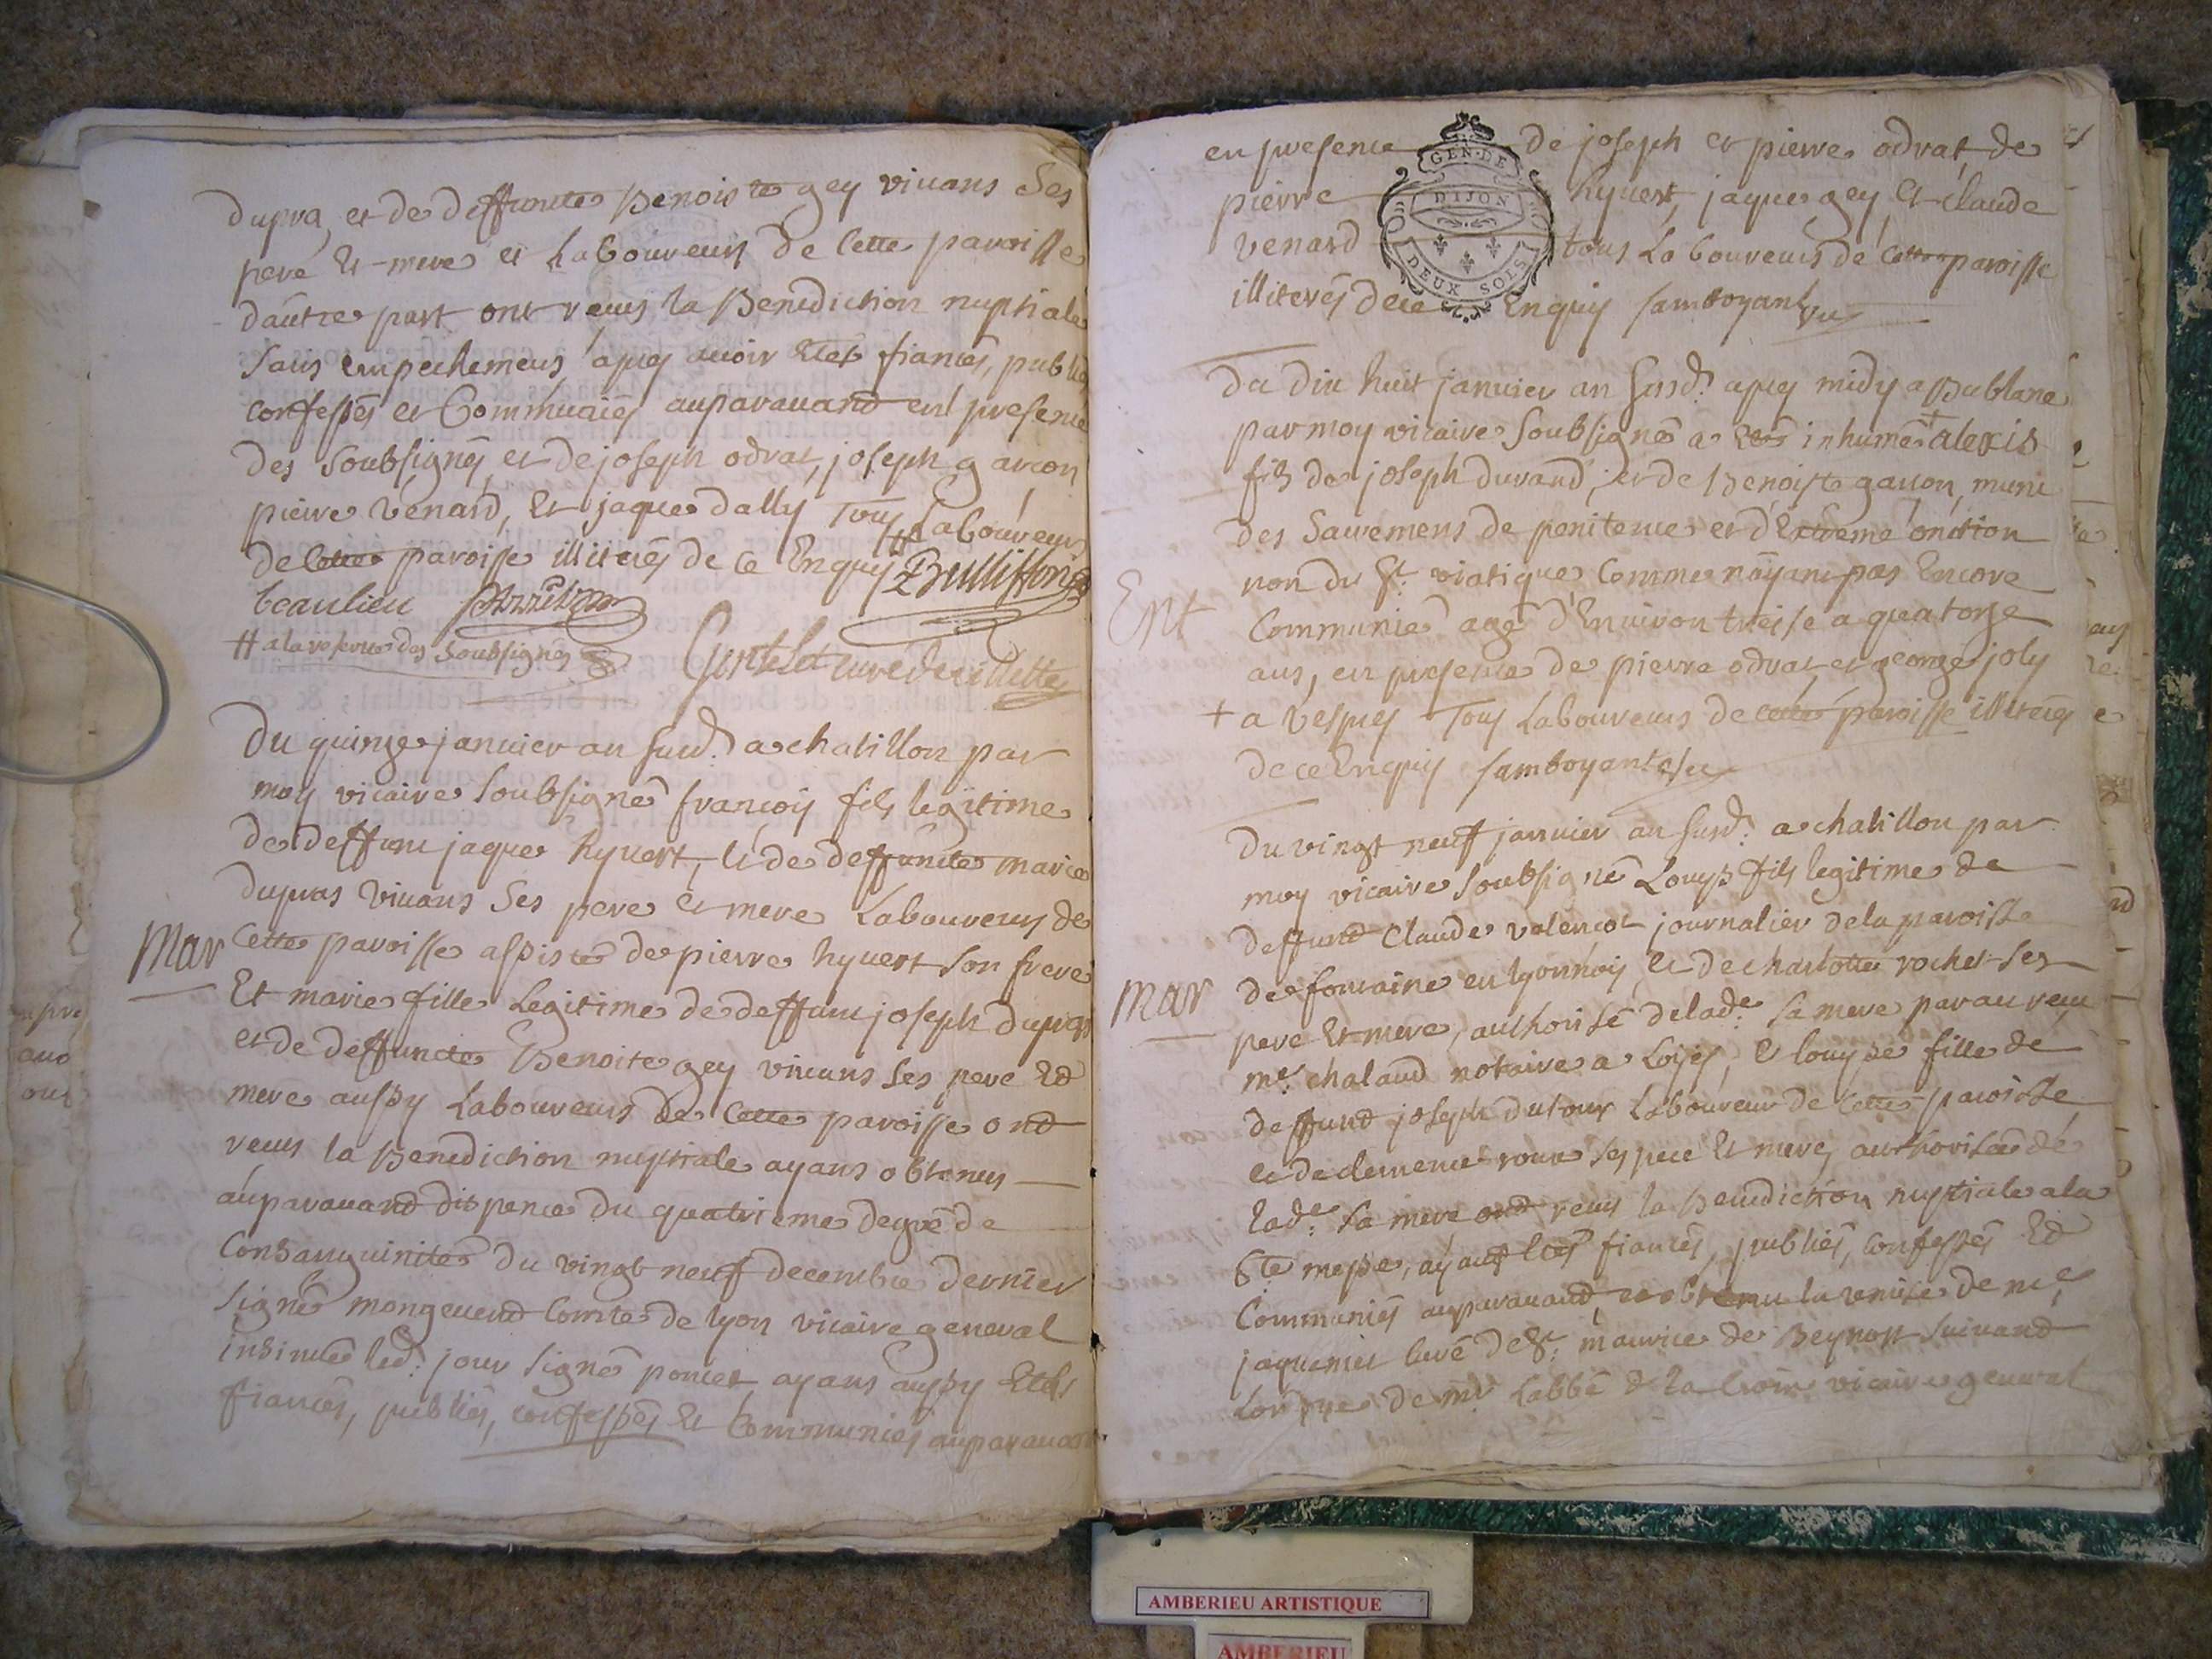 dupra, et de deffuncte Benoiste gey vivans Ses
pere Et mere et Laboureurs de Cette paroisse
d'autre part ont receus la Benediction nuptiale
Sans empechemens apres avoir Etés fiancés, publiés
confessés et Communiés auparavand en presence
des Soubsignés et de joseph odrat, joseph garcon
pierre venard, Et jaque dally Tous Laboureurs
de Cette paroisse illiterés de ce Enquis # Bullifton
beaulieu
# a la reserve des Soubsignés
curé de villette
Du quinze janvier an susd. a chatillon par
moy vicaire Soubsigné françois fils legitime
de deffunt jaque hyvert, Et de deffuncte marie
dupras vivans Ses pere et mere Laboureurs de
Mar
Cette paroisse assisté de pierre hyvert Son frere
Et marie fille Legitime de deffunt joseph dupras
et de deffuncte Benoite gey vivans Ses pere Et
mere aussy Laboureurs de Cette paroisse ont
receus la Benediction nuptiale ayans obtenus
auparavand dispence du quatrieme degré de
Consanguinité du vingt neuf decembre dernier
Signé mongeuend Comte de lyon vicaire general
insinuée led. jour Signé poncet, ayans aussy Etés
fiancés, publiés, confessés Et Communiés auparavand
en presence de joseph et pierre odrat, de
pierre hyvert, jaque gey, Et claude
venard tous Laboureurs de Cette paroisse
illiterés de ce Enquis
GEN. DE
DIJON
DEUX SOLS
Du dix huit janvier an susd. apres midy a Bublane
par moy vicaire Soubsigné a Eté inhumé + alexis
fils de joseph durand, et de Benoiste garçon, muni
des Sacremens de penitence et d'Extreme onction
Ent
non du St. viatique Comme n'ayant pas Encore
Communié agé d'Environ treise a quatorze
ans, en presence de pierre odrat et george joly
+ a vespres Tous Laboureurs de cette paroisse illiterés
de ce Enquis
Du vingt neuf janvier an susd. a chatillon par
moy vicaire Soubsigné Louys fils legitime de
deffund Claude valençot journalier de la paroisse
Mar
de fontaine en lyonnois, et de charlotte rochet ses
pere Et mere, authorisé de lad.e Sa mere par au receu
me. chaland notaire a Loyes, Et louyse fille de
deffund joseph dutour Laboureur de Cette paroisse
et de clemence roux ses pere Et mere, authorisée de
lad.e Sa mere ont receus la Benediction nuptiale a la
Ste messe, ayant Etés fiancés, publiés, confessés Et
Communiés auparavand, et obtenu la remise de me.
jaquemet curé de St. maurice de Beynost suivand
L'ordre de mr. L'abbé de la Croix vicaire general
AMBERIEU ARTISTIQUE
AMBERIEU